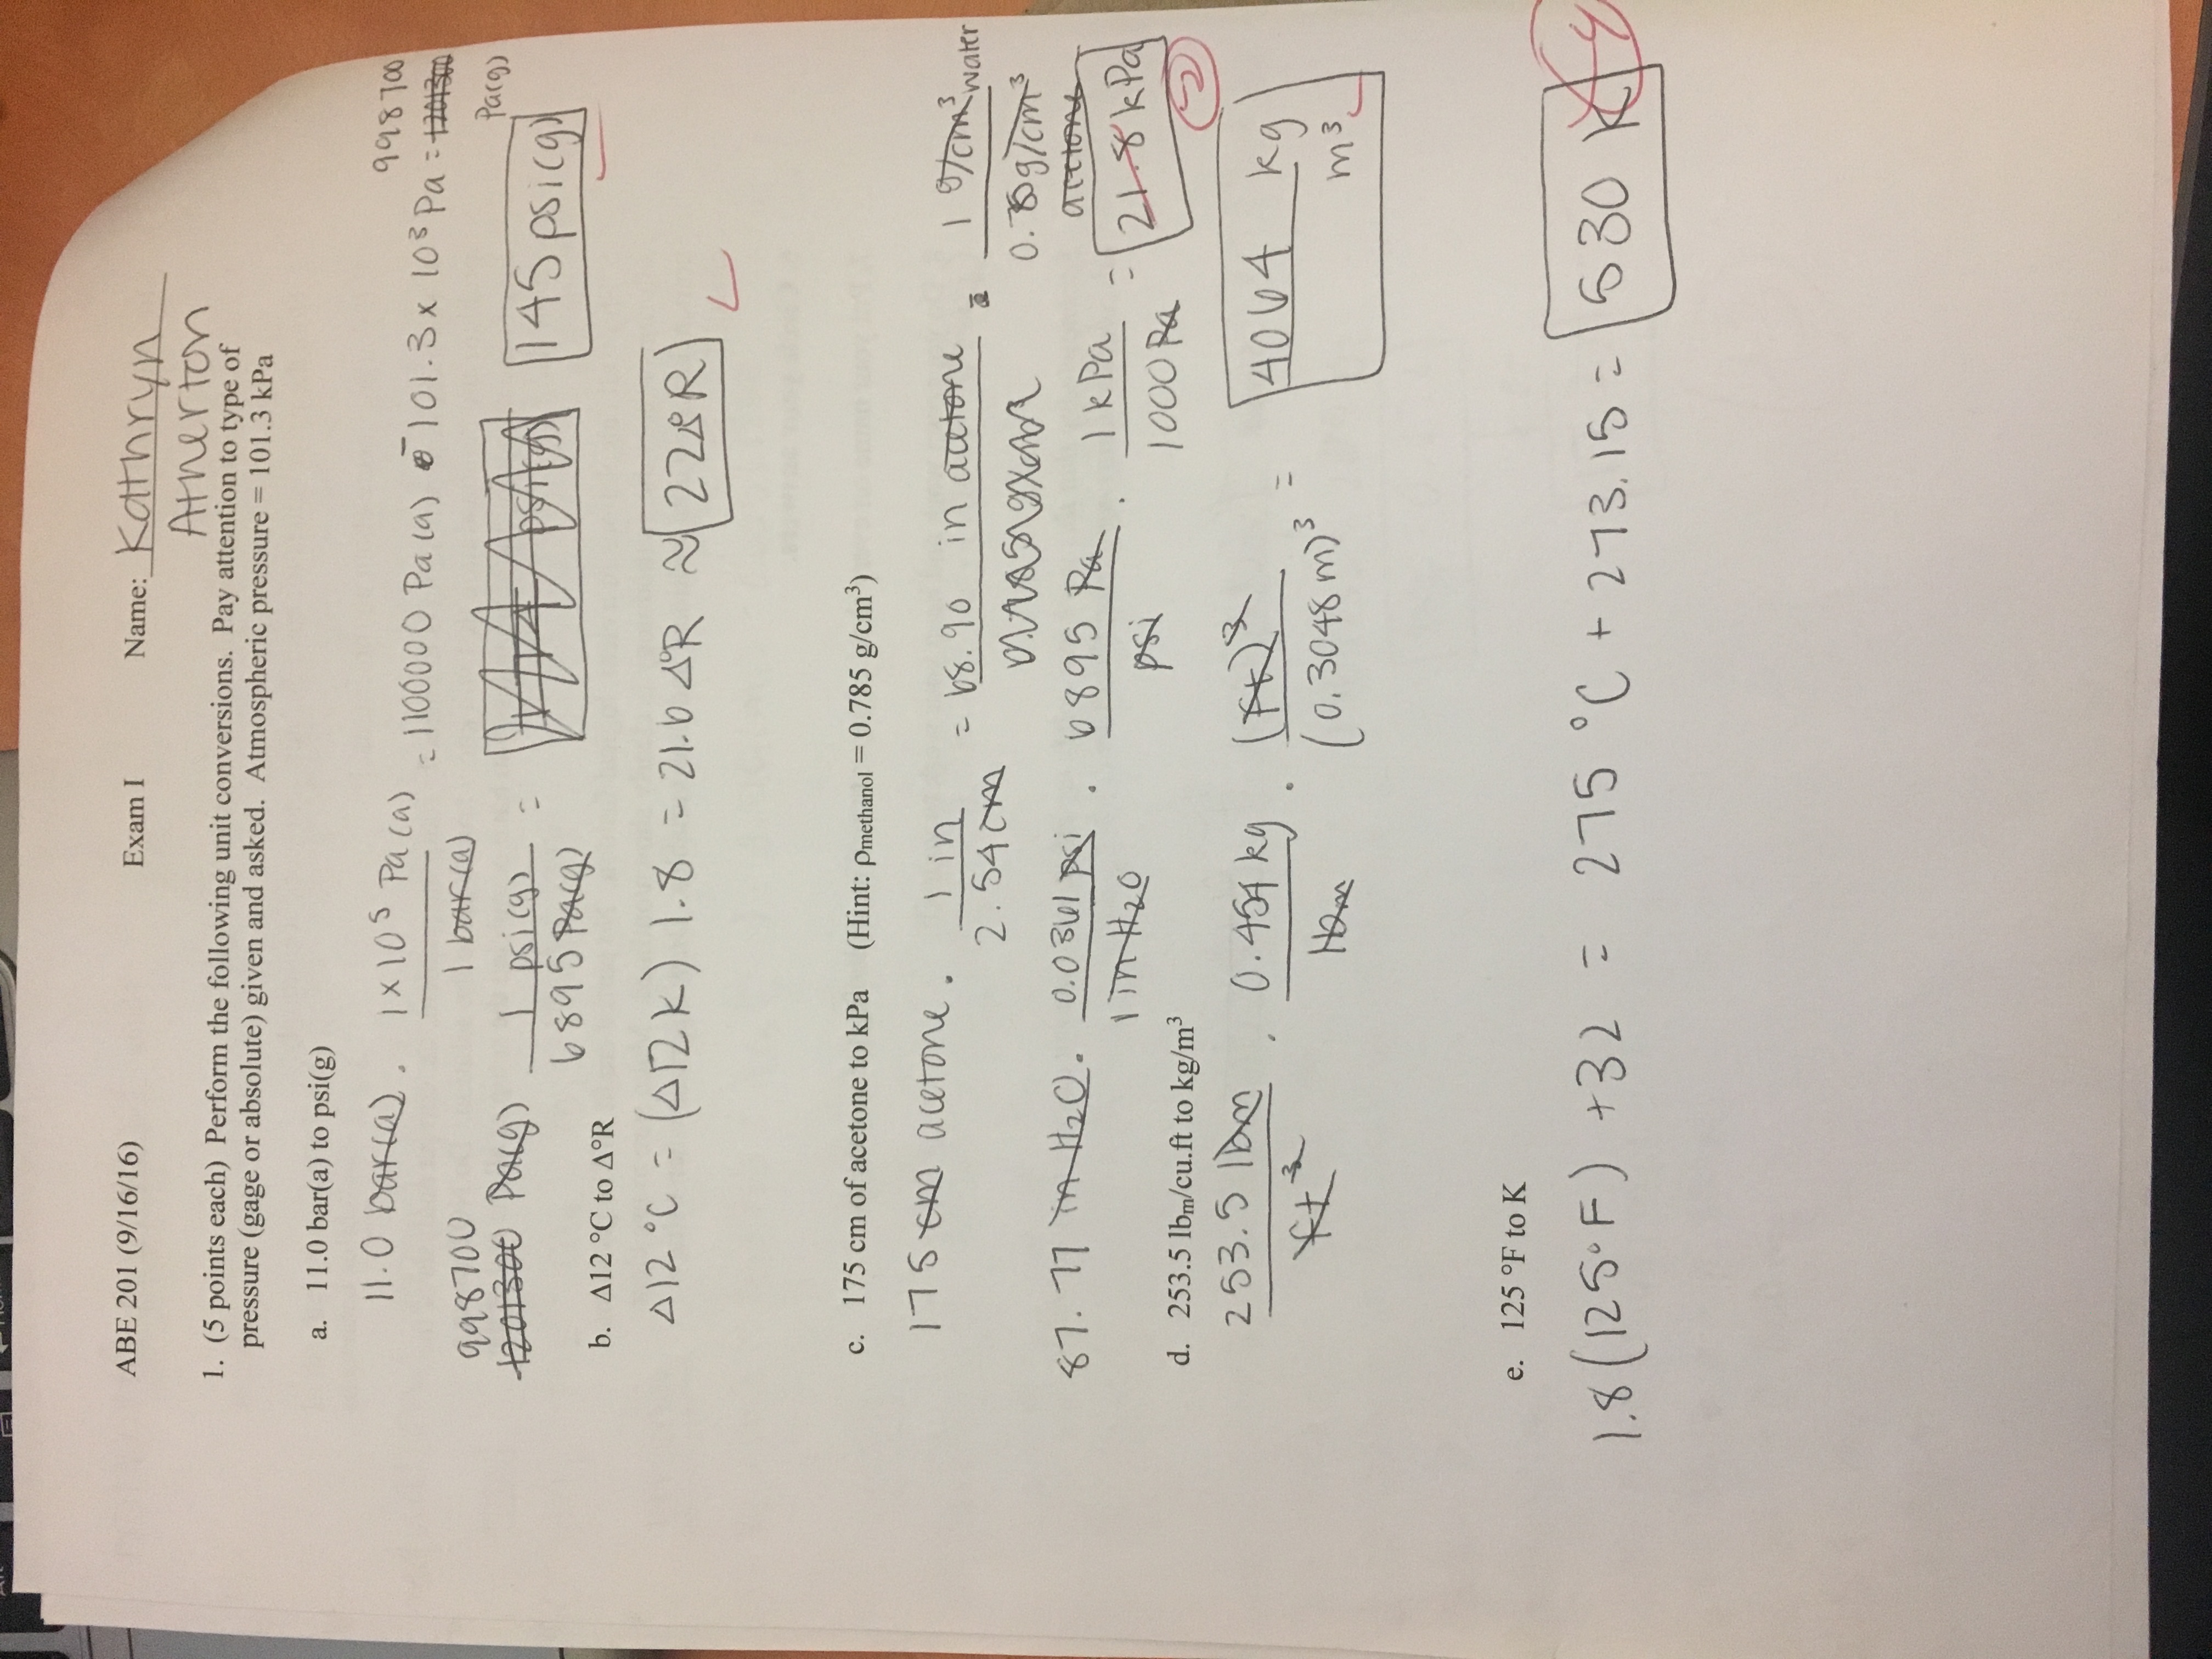 ABE 201 (9/16/16) Exam I Name: Kathryn
Atherton
1. (5 points each) Perform the following unit conversions. Pay attention to type of
pressure (gage or absolute) given and asked. Atmospheric pressure = 101.3 kPa
a. 11.0 bar(a) to psi(g)
998700
11.0 bar(a) · 1×10⁵ Pa(a) / 1 bar(a) = 1100000 Pa(a) - 101.3 × 10³ Pa = 1201300
Pa(g)
998700
1201300 Pa(g) 1 psi(g) / 6895 Pa(g) = psi(g) 145 psi(g)
b. Δ12 °C to Δ°R
Δ12 °C = (Δ12 K) 1.8 = 21.6 Δ°R ≈ 22Δ°R
c. 175 cm of acetone to kPa (Hint: ρmethanol = 0.785 g/cm³)
175 cm acetone · 1 in / 2.54 cm = 68.90 in acetone 1 g/cm³ water / g/cm³ acetone
87.77 in H₂O · 0.0361 psi / 1 in H₂O · 6895 Pa / psi · 1 kPa / 1000 Pa = 21.8 kPa
d. 253.5 lbm/cu.ft to kg/m³
253.5 lbm / ft³ · 0.454 kg / lbm · (ft)³ / (0.3048 m)³ = 4064 kg / m³
e. 125 °F to K
1.8(125°F) + 32 = 275 °C + 273.15 = 530 K -4